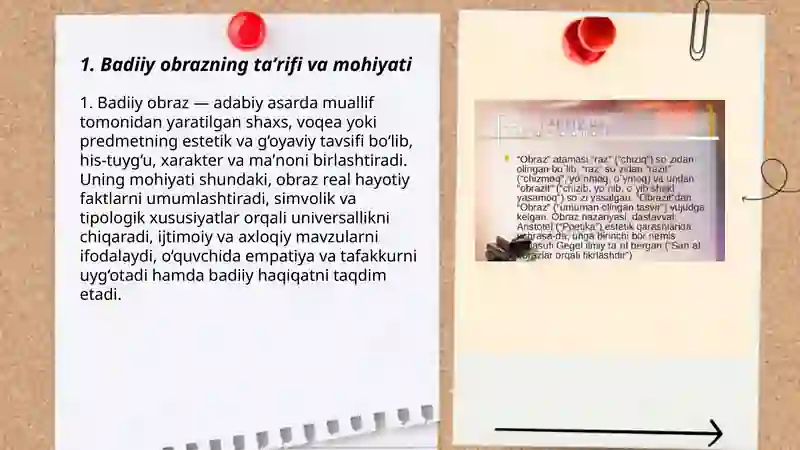 1. Badiiy obrazning ta’rifi va mohiyati
1. Badiiy obraz — adabiy asarda muallif
tomonidan yaratilgan shaxs, voqea yoki
predmetning estetik va g‘oyaviy tavsifi bo‘lib,
his-tuyg‘u, xarakter va ma’noni birlashtiradi.
Uning mohiyati shundaki, obraz real hayotiy
faktlarni umumlashtiradi, simvolik va
tipologik xususiyatlar orqali universallikni
chiqaradi, ijtimoiy va axloqiy mavzularni
ifodalaydi, o‘quvchida empatiya va tafakkurni
uyg‘otadi hamda badiiy haqiqatni taqdim
etadi.
“Obraz” atamasi “raz” (“chiziq”) so`zidan
olingan bo`lib, “raz” so`zidan “razit”
(“chizmoq”, yo`nmoq, o`ymoq) va undan
“obrazit” (“chizib, yo`nib, o`yib shakl
yasamoq”) so`zi yasalgan. “Obrazit”dan
“Obraz” (“umuman olingan tasvir”) vujudga
kelgan. Obraz nazariyasi dastavval
Aristotel (“Poetika”) estetik qarashlarida
da, unga birinchi bor nemis
Gegel ilmiy ta`rif bergan (“San`at
orqali fikrlashdir”)